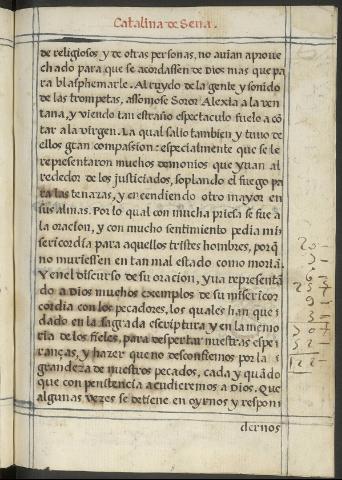 Catalina de Sena.
de religiosos y de otras personas, no auian aproue
chado para que se acordassen de Dios mas que pa
ra blasphemarle. Al ruydo de la gente y sonido
de las trompetas, assomose Soror Alexia a la ven
tana, y viendo tan estraño espectaculo fuelo a cõ
tar a la virgen. La qual salio tambien y tuuo de
ellos gran compassion: especialmente que se le
representaron muchos demonios que yuan al
rededor de los justiciados, soplando el fuego pa
ra las tenazas, y encendiendo otro mayor en
sus almas. Por lo qual con mucha priesa se fue a
la oracion, y con mucho sentimiento pedia mi
sericordia para aquellos tristes hombres, porq̃
no muriessen en tan mal estado como moriã.
Y en el discurso de su oracion, yua representã
do a Dios muchos exemplos de su misericor
cordia con los pecadores, los quales han que
dado en la sagrada escriptura y en la memo
ria de los fieles, para despertar nuestras espe
ranças, y hazer que no desconfiemos por la
grandeza de nuestros pecados, cada y quãdo
que con penitencia acudieremos a Dios. Que
algunas vezes se detiene en oyrnos y respon
dernos
20-
3-
6-
257
9-
3-
307
52-
122-